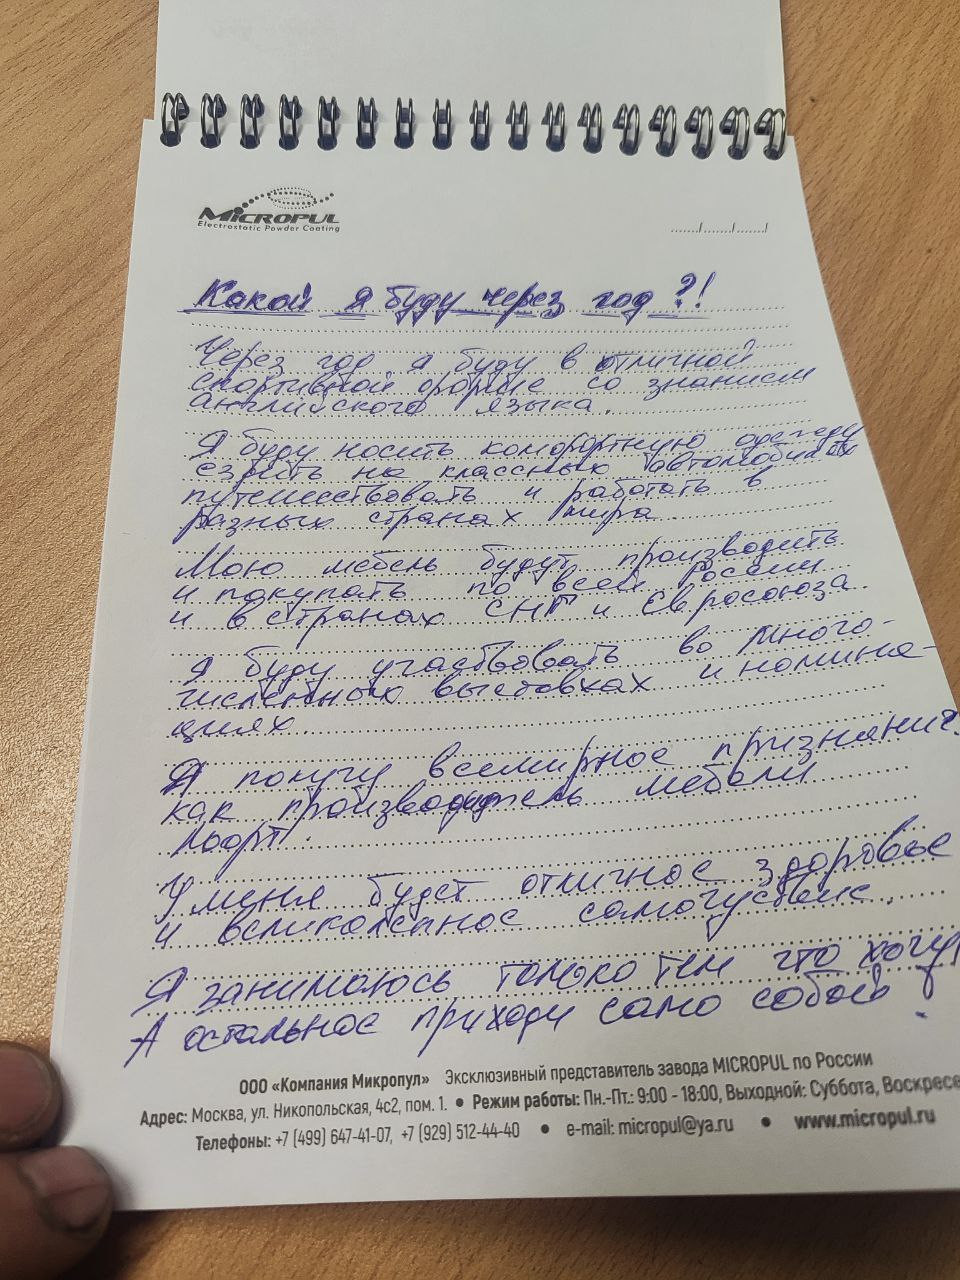 MICROPUL
Electrostatic Powder Coating
......./......./......./
Какой я буду через год?!
Через год я буду в отличной
спортивной форме со знанием
английского языка.
Я буду носить комфортную одежду
ездить на классных автомобилях
путешествовать и работать в
разных странах мира.
Мою мебель будут производить
и покупать по всей России
и в странах СНГ и Евросоюза
Я буду участвовать во много-
численных выставках и номина-
циях.
Я получу всемирное признание
как производитель мебели
Лофт.
У меня будет отличное здоровье
и великолепное самочувствие.
Я занимаюсь только тем что хочу,
А остальное приходи само собой!
ООО «Компания Микропул» Эксклюзивный представитель завода MICROPUL по России
Адрес: Москва, ул. Никопольская, 4с2, пом. 1. • Режим работы: Пн.-Пт.: 9:00 - 18:00, Выходной: Суббота, Воскресе
Телефоны: +7 (499) 647-41-07, +7 (929) 512-44-40 • e-mail: micropul@ya.ru • www.micropul.ru